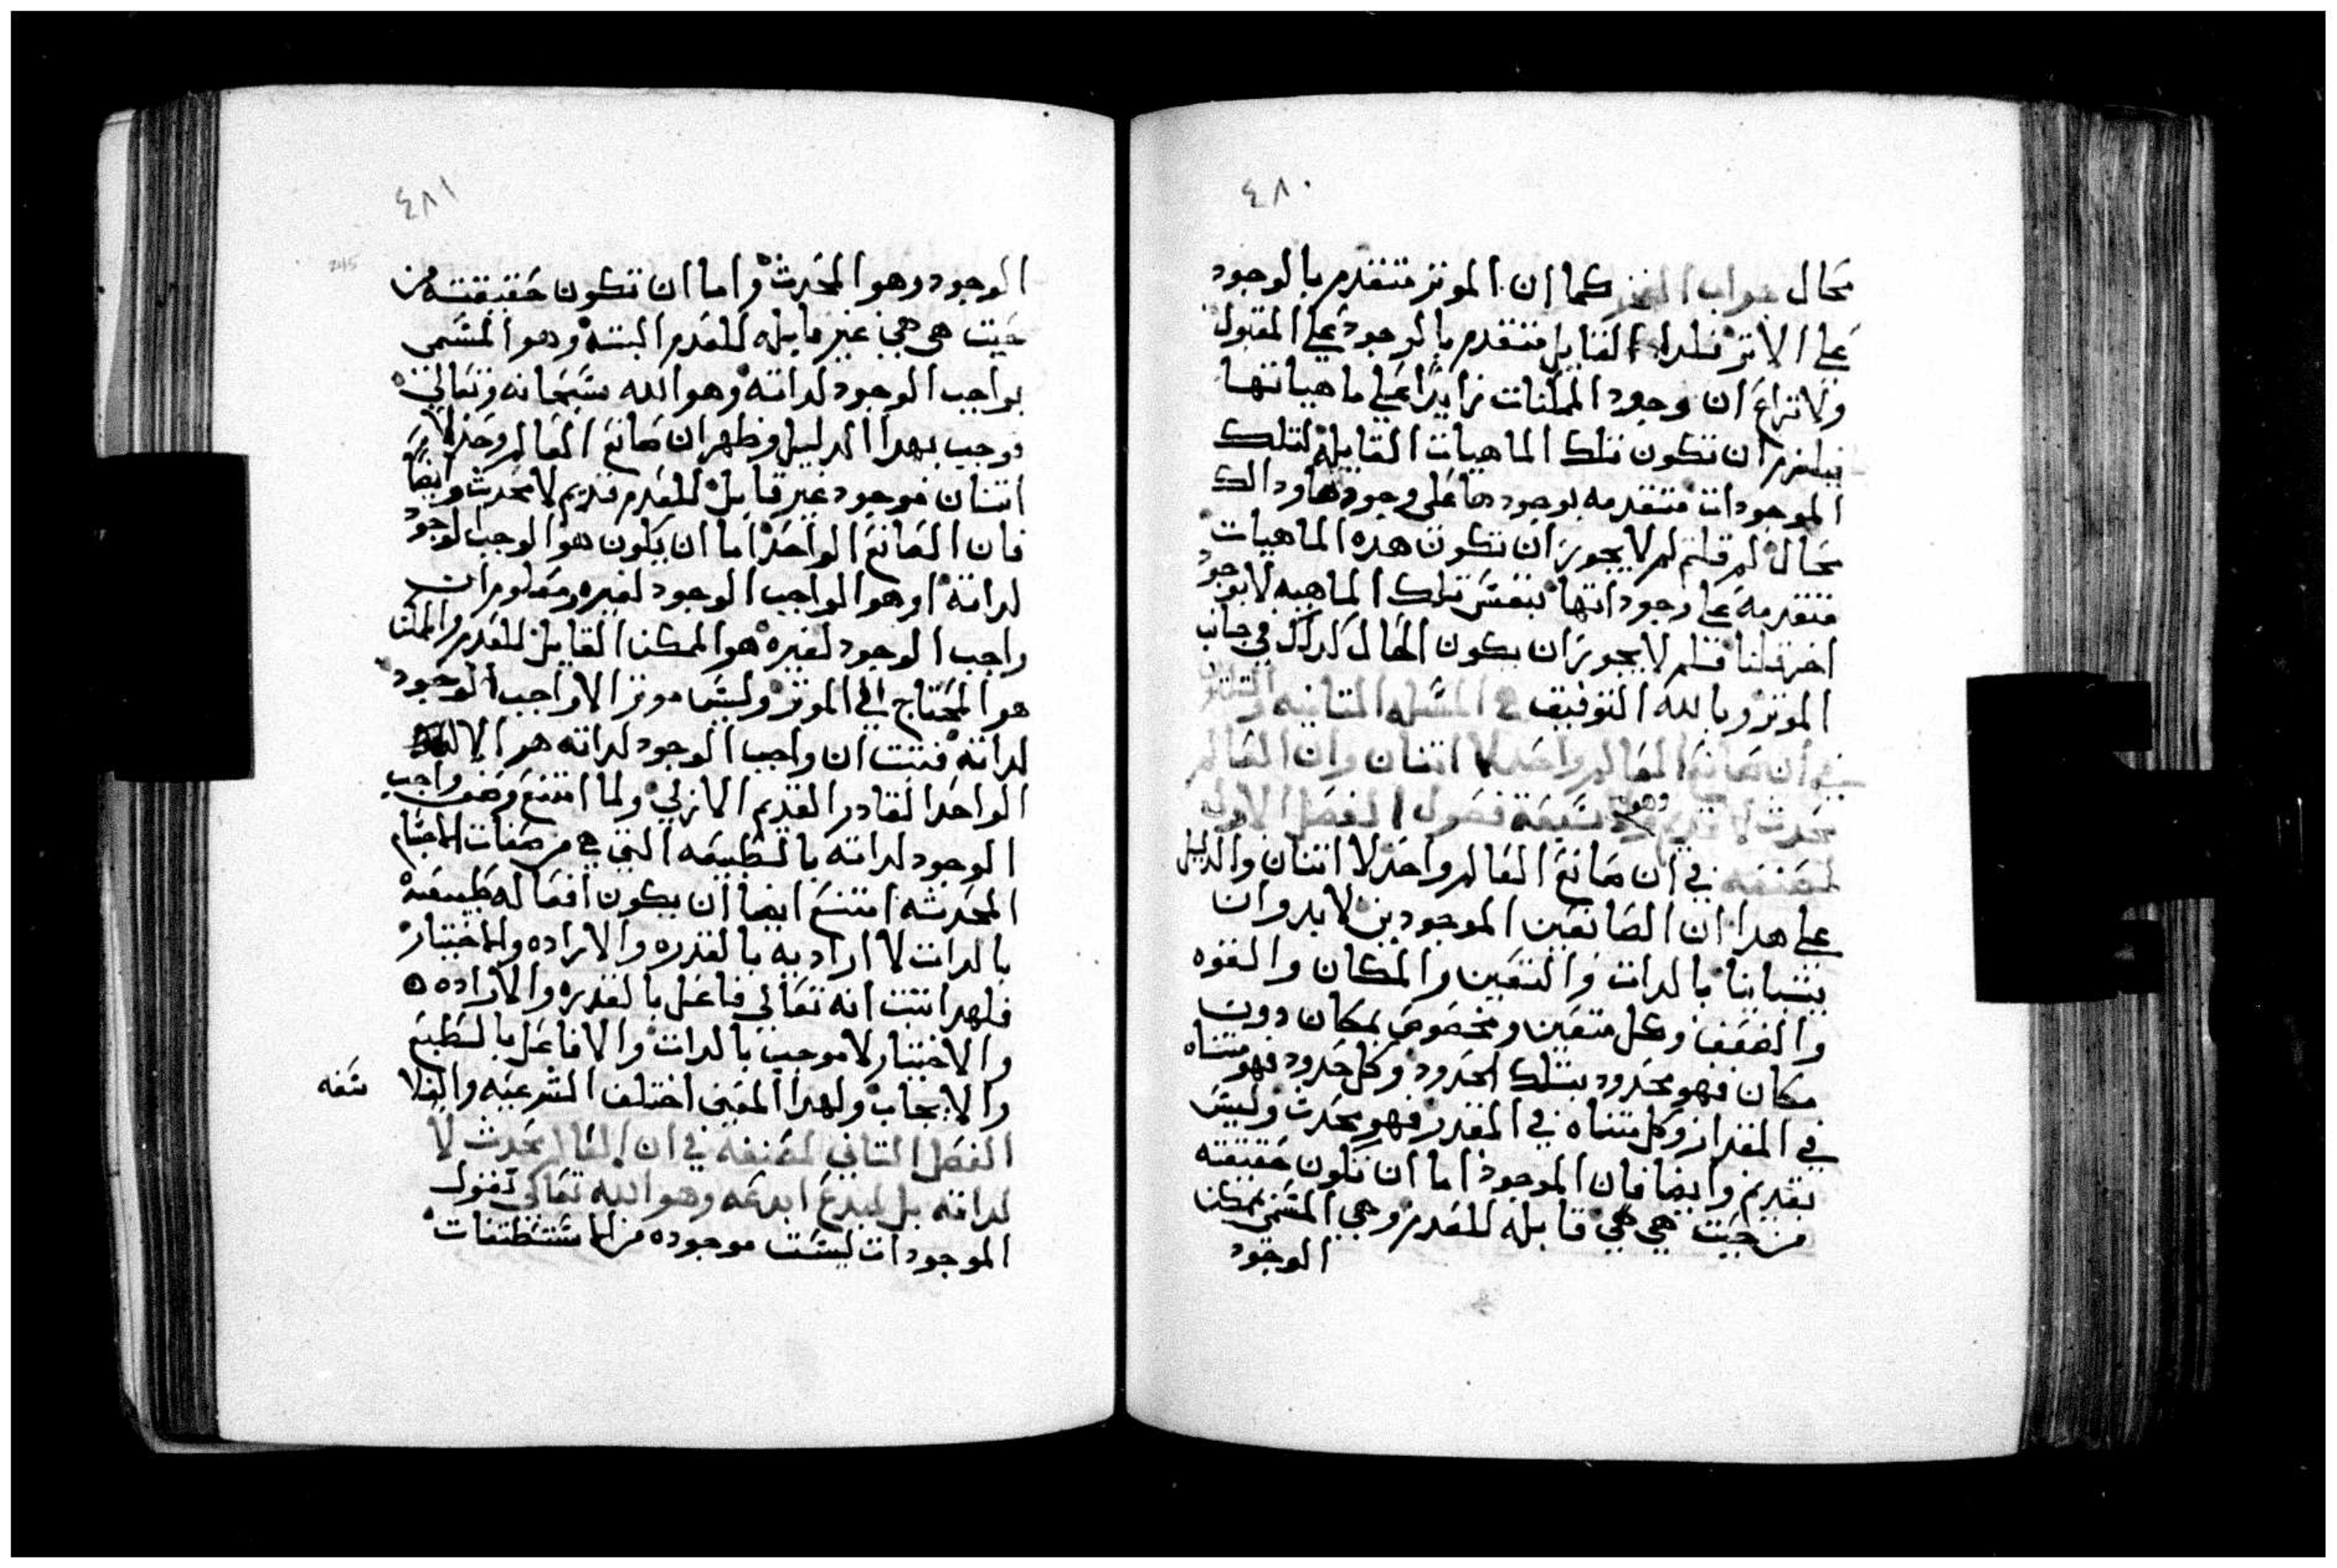 ٤٨٠
محال جواب الفخر كما ان الموتر متقدم بالوجود
على الاتر فلدا القابل متقدم بالوجود على المقبول
ولا نزاع ان وجود الممكنات زايدًا على ماهياتها
فيلزم ان تكون تلك الماهيات القابلة لتلك
الموجودات متقدمه بوجودها على وجودها ودالك
محال لم قلتم لم لا يجوز ان تكون هده الماهيات
متقدمة على وجوداتها بنفس تلك الماهيه لا بوجود
اخر قلنا فلم لا يجوز ان يكون الحال كدالك في جانب
الموتر وبالله التوفيق في المسله التانيه و
في ان صانع العالم واحد لا اتنان وان العالم
محدث لا قديم وهو سبعة فصول الفصل الاول
لمصنفه في ان صانع العالم واحد لا اتنان والدليل
على هدا ان الصانعين الموجودين لا بد وان
يتباينا بالدات والتعين والمكان والقوه
والضعف وكل متعين ومخصوص بمكان دون
مكان فهو محدود بتلك الحدود وكل حدود فهو متناه
في المقدار وكل متناه في المقدر فهو محدث وليس
بقديم وايضا فان الموجود اما ان تكون حقيقته
من حيت هي هي قابله للعدم وهي المسمى بممكن
الوجود
٤٨١
245
الوجود وهو المحدث واما ان تكون حقيقته من
حيت هي هي غير قابله للعدم البته وهو المسمى
بواجب الوجود لداته وهو الله سبحانه وتعالى
فوجب بهدا الدليل وظهر ان صانع العالم وحد لا
اتنان موجود غير قابل للعدم قديم لا محدث وايضًا
فان الصانع الواحد اما ان يكون هو الوجب لوجود
لداته او هو الواجب الوجود لغيره ومعلوم ان
واجب الوجود لغيره هو الممكن القابل للعدم والممكن
هو المحتاج الى الموتر وليس موتر الا واجب الوجود
لداته فتبت ان واجب الوجود لداته هو الاله
الواحد القادر القديم الازلي ولما امتنع وصف واجب
الوجود لداته بالطبيعه التي هي من صفات الاجسام
المحدثه امتنع ايضا ان يكون افعاله طبيعة
بالدات لا اراديه بالقدره والاراده والاختيار
فلهدا تبت انه تعالى فاعل بالقدره والاراده
والاختيار لا موجب بالدات والا فاعل بالطبع
والايجاب ولهدا المعنى اختلف الشرعيه والفلا سفه
الفصل التاني لمصنفه في ان العالم محدث لا
لداته بل لمبدع ابدعه وهو الله تعالى تقول
الموجودات ليست موجوده من الاستقطفات